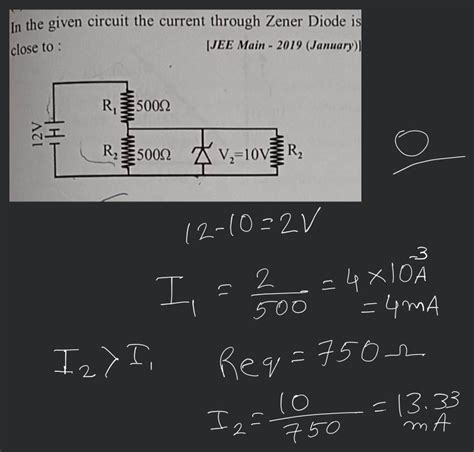 In the given circuit the current through Zener Diode is
close to :
[JEE Main - 2019 (January)]
12V
R₁
500Ω
R₂
500Ω
V₂=10V
R₂
0
12-10=2V
I₁ = 2/500 = 4×10⁻³A
= 4mA
I₂>I₁
Req = 750Ω
I₂ = 10/750 = 13.33
mA